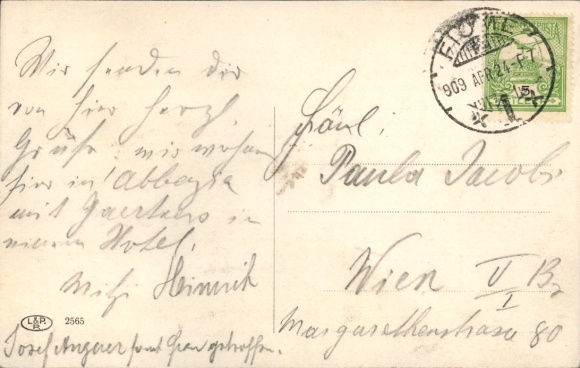 Wir senden dir
von hier herzl.
Grüße, wir wohnen
hier in Abbazia
mit Gaertners in
einem Hotel.
Mitzi Heinrich
Josef Angerer
FIUME
909 APR. 24
L&P.
B.
2565
Fräul.
Paula Jacobi
Wien V Bz
I
Margarethenstrasse 80